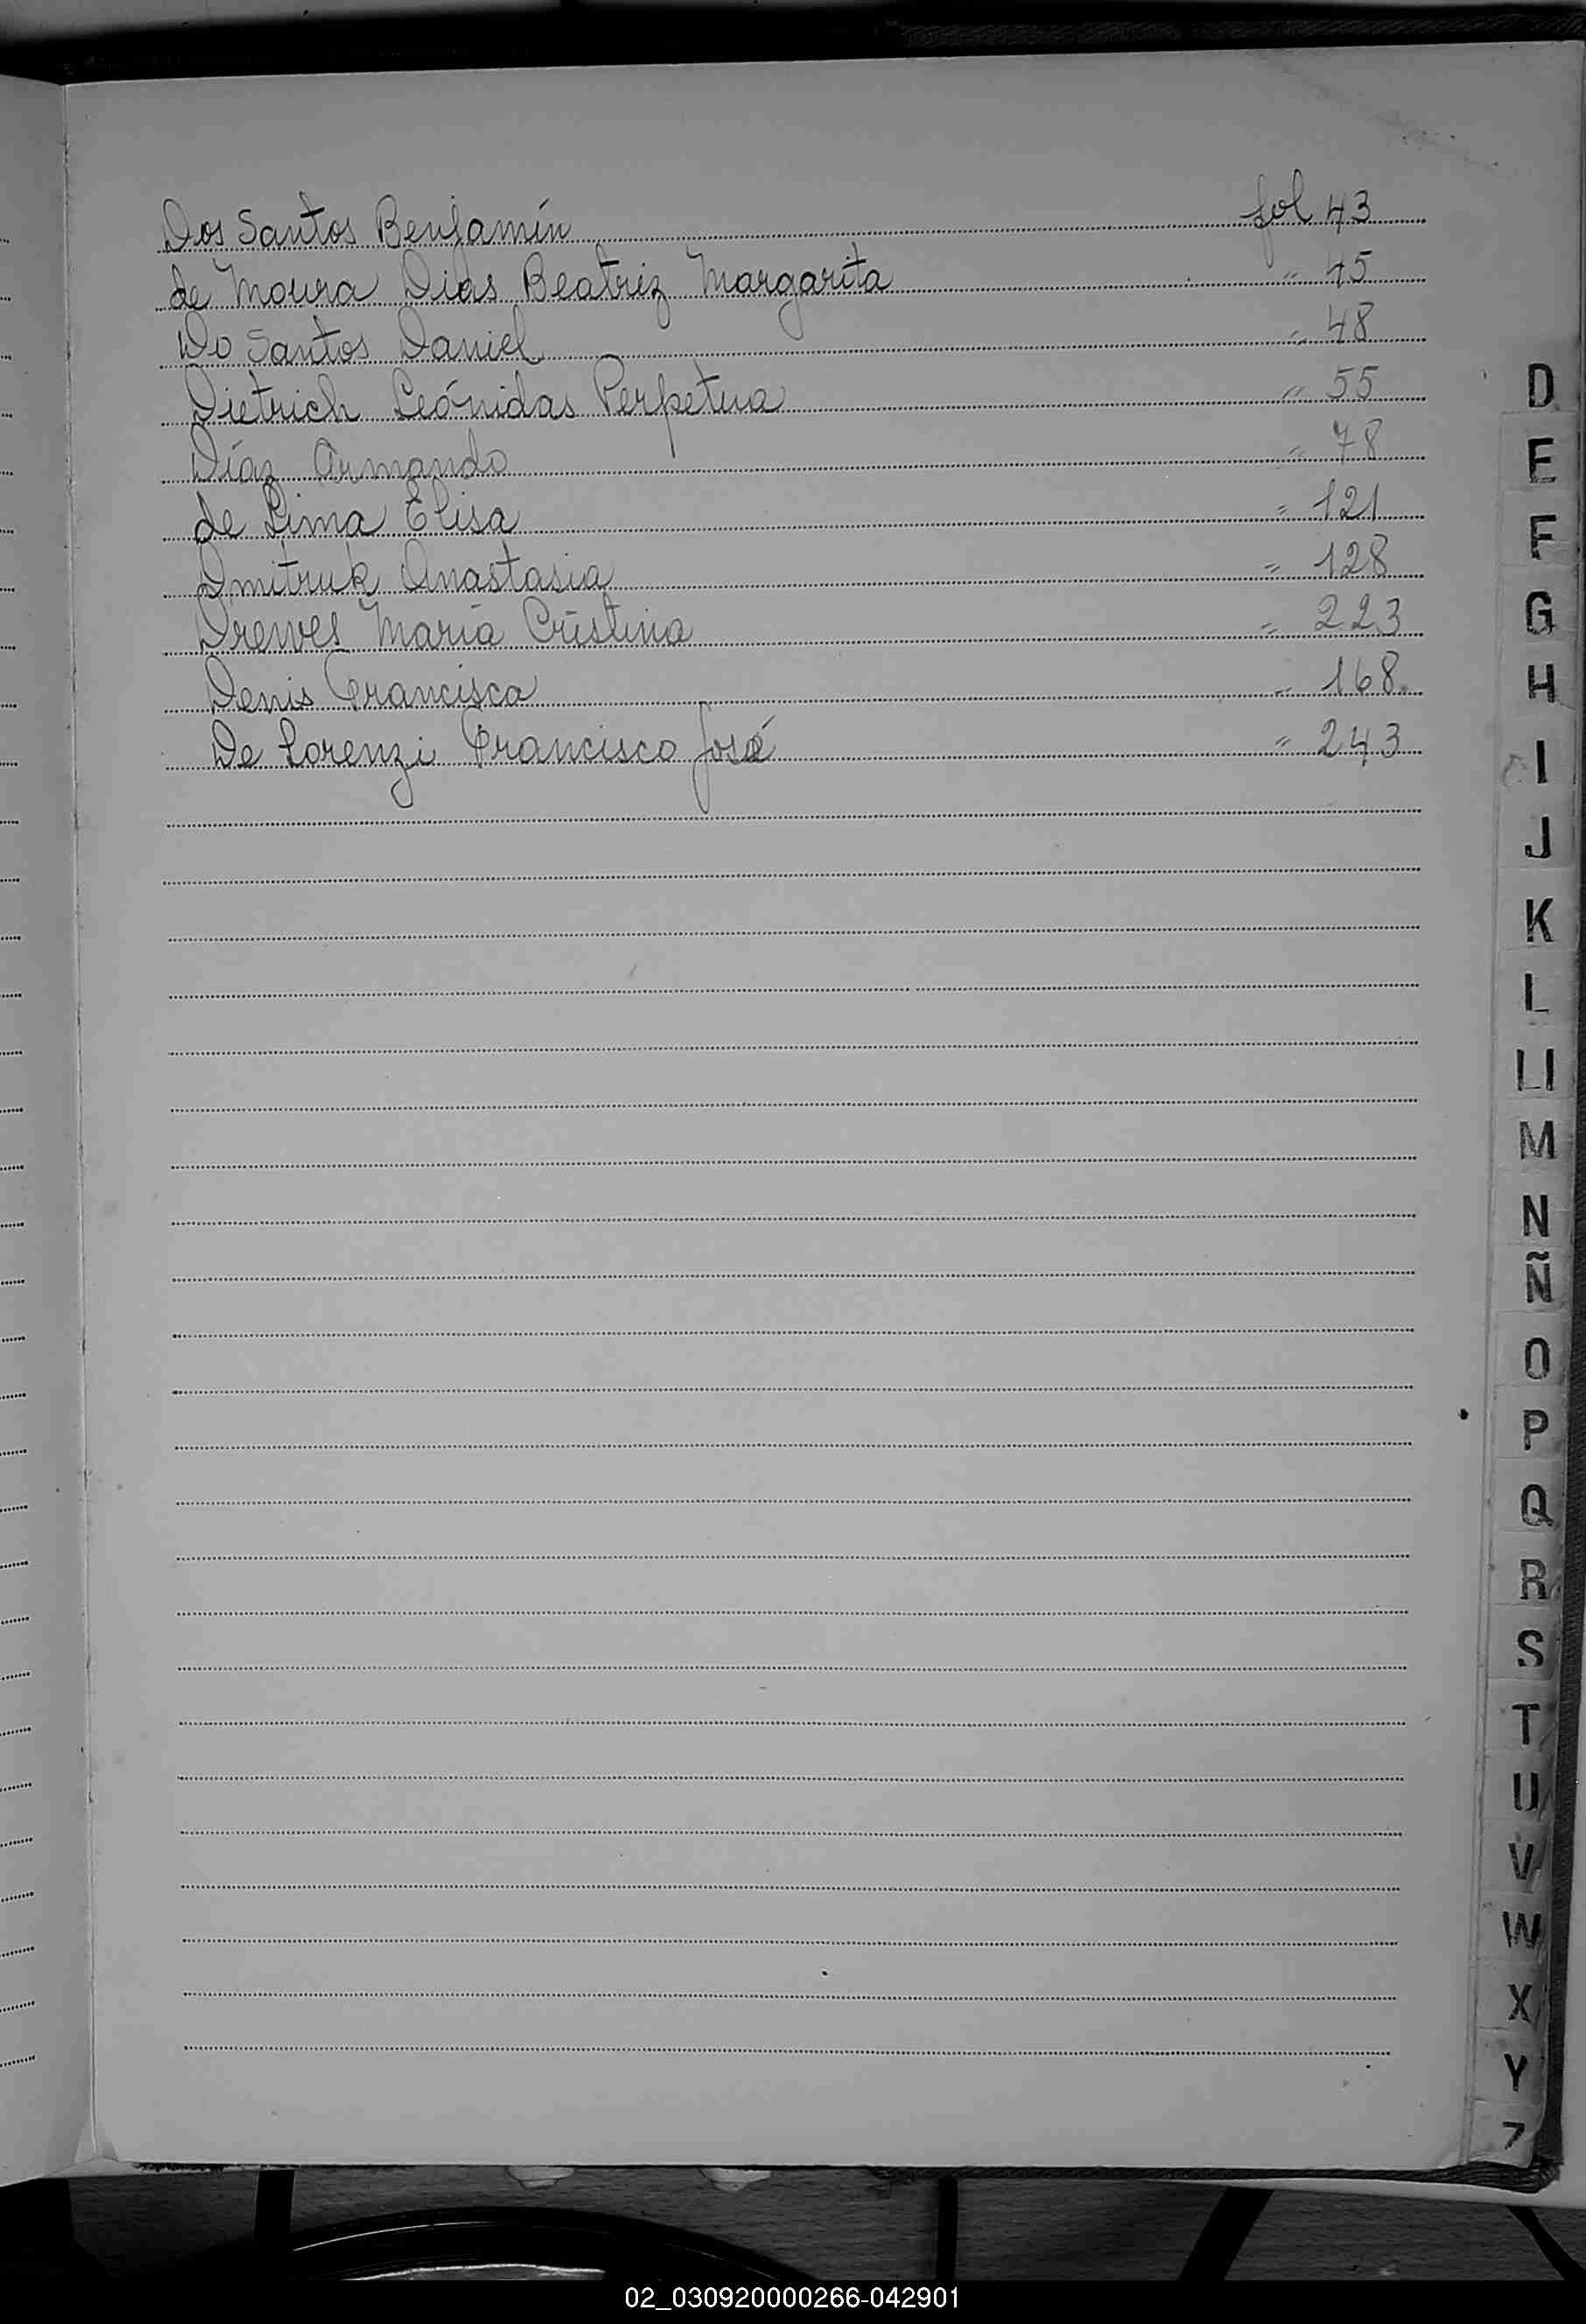 Dos Santos Benjamín fol 43
de Moura Dias Beatriz Margarita " 45
Do Santos Daniel " 48
Dietrich Leónidas Perpetua " 55
Díaz Armando " 78
de Lima Elisa " 121
Dmitruk Anastasia " 128
Drewes María Cristina " 223
Denis Francisca " 168
De Lorenzi Francisco José " 243
D
E
F
G
H
I
J
K
L
Ll
M
N
Ñ
O
P
Q
R
S
T
U
V
W
X
Y
Z
02_030920000266-042901